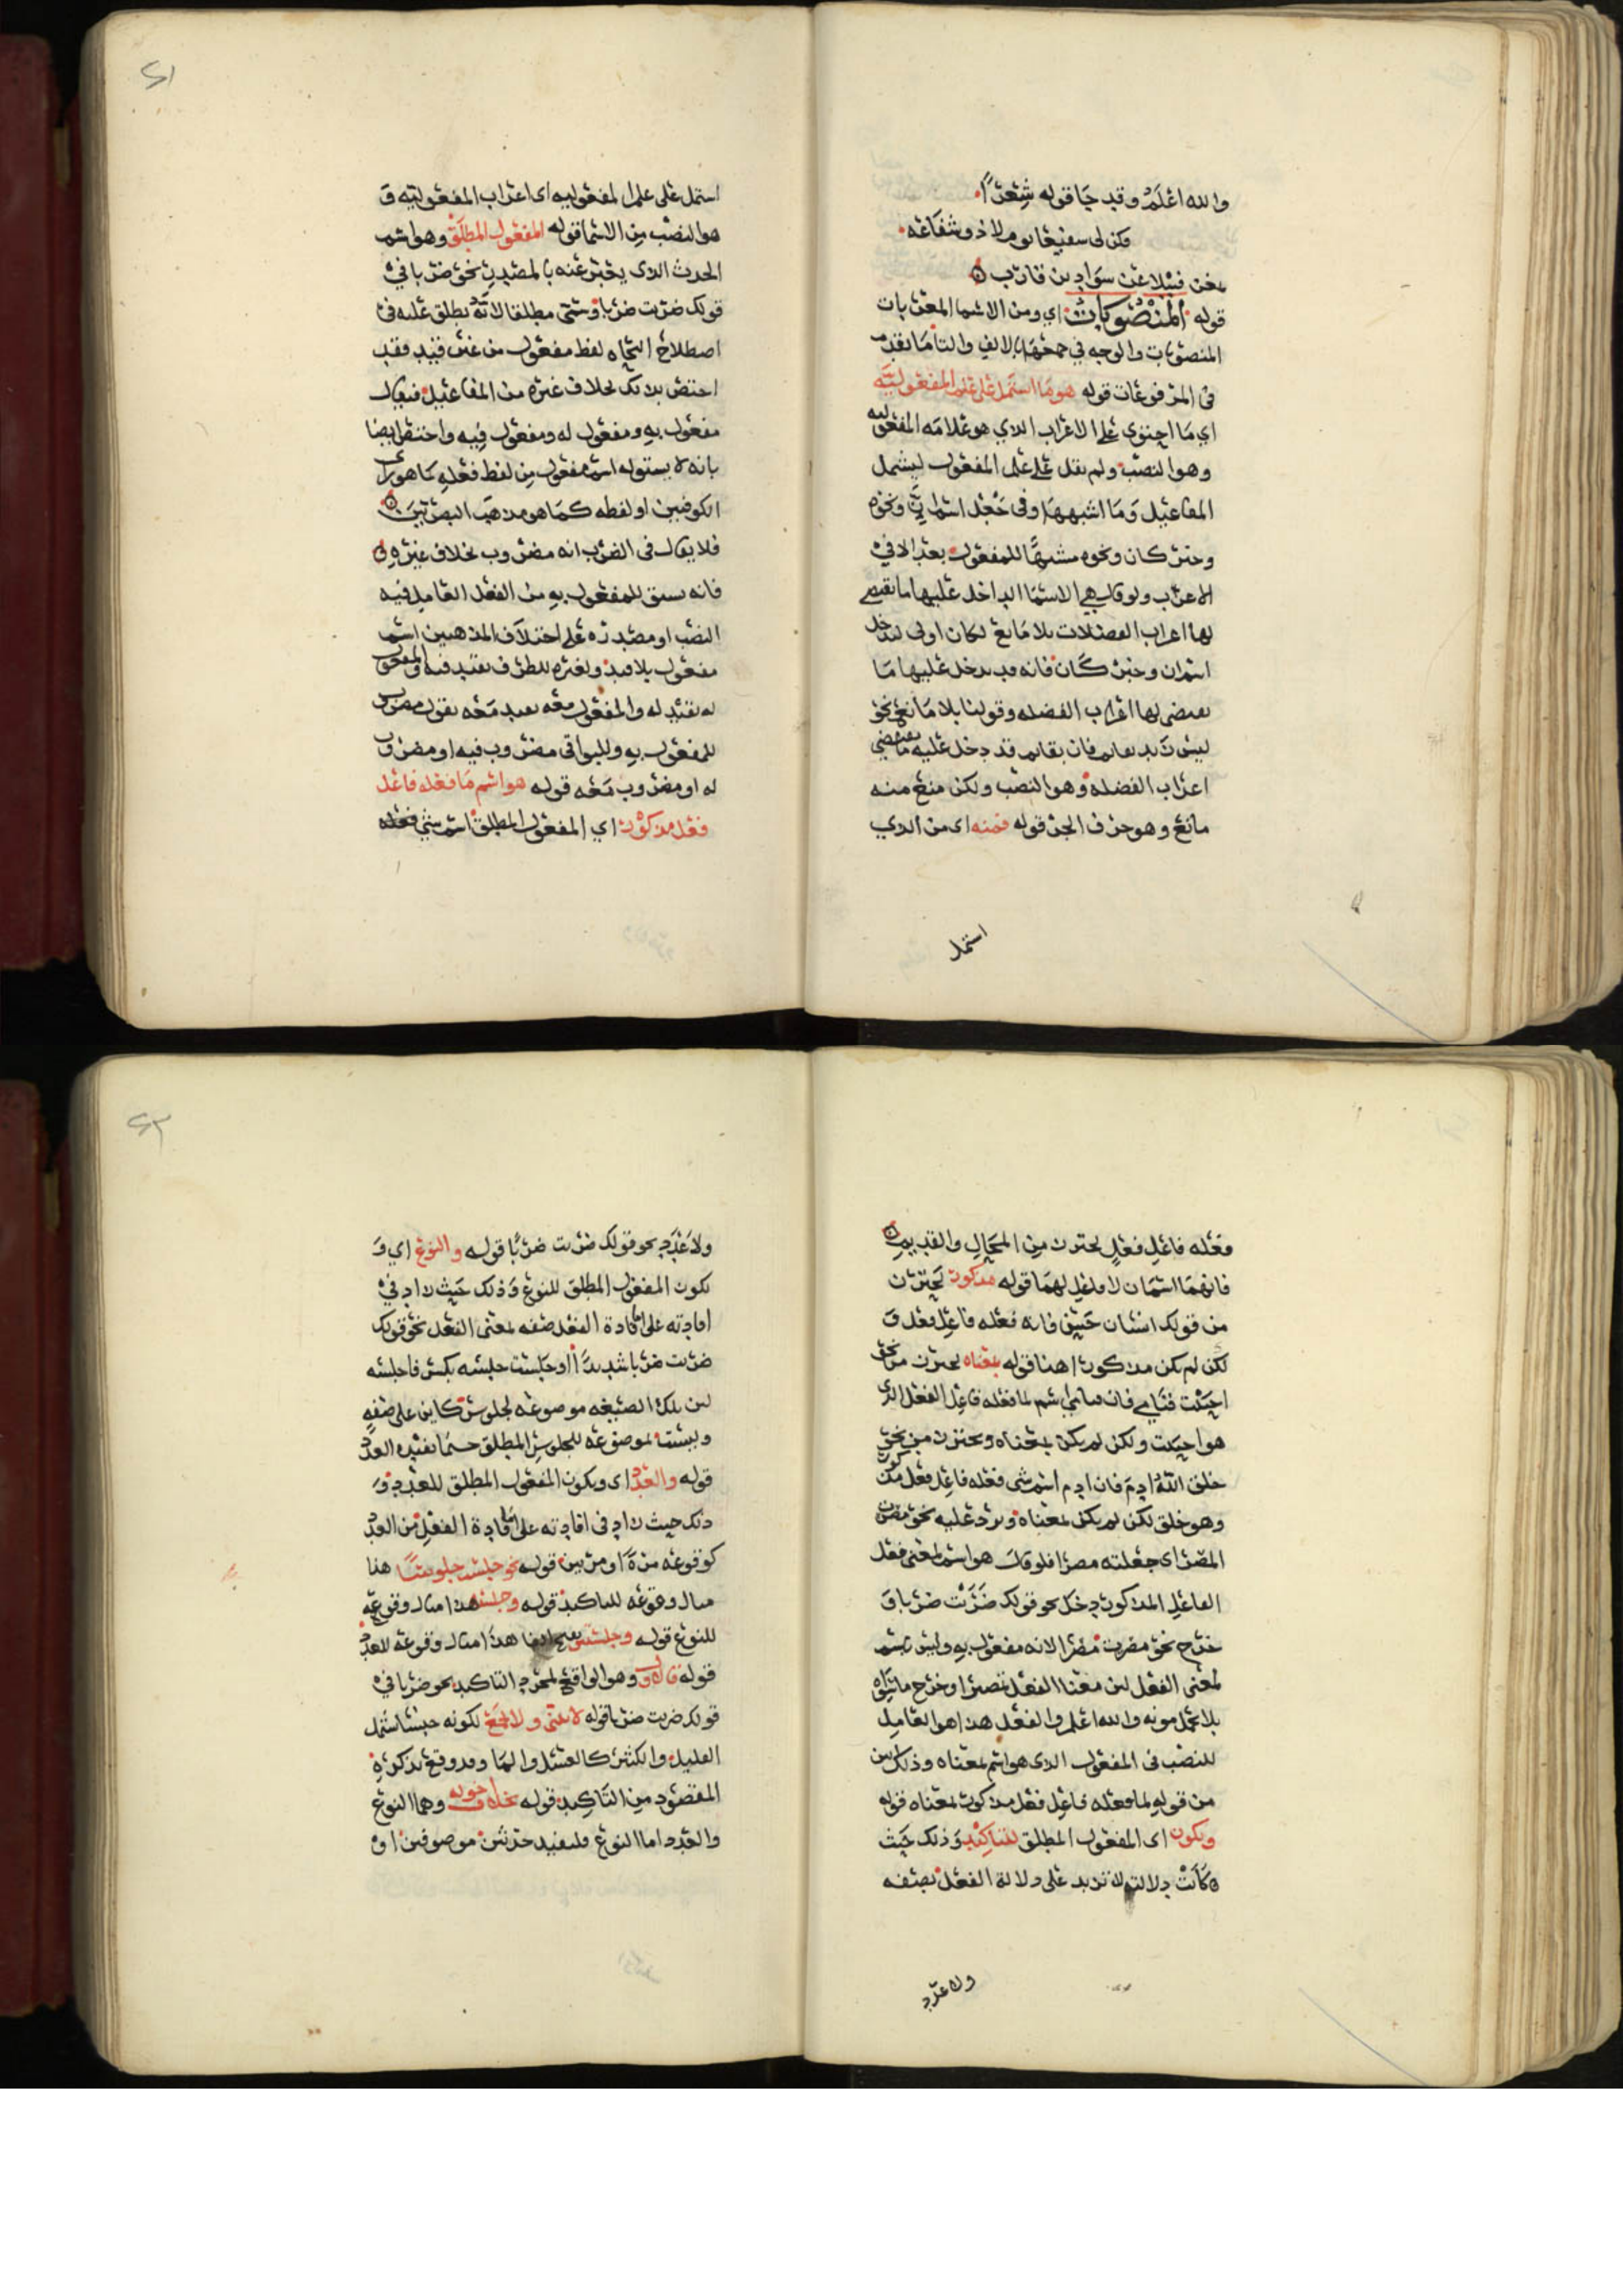 والله اعلم وقد جا قوله شعرًا
فكن لى سفيعا يوم لا ذو شفاعه
بمغن فتيلا عن سواد بن قارب
قوله المنصوبات اي ومن الاسما المعربات
المنصوبات والوجه في جمعها بالالف والتا ما تقدم
فى المرفوعات قوله هو ما اشتمل على علم المفعوليه
اي ما احتوى على الاعراب الدي هو علامه المفعوليه
وهو النصب ولم يقل على علم المفعول ليشمل
المفاعيل وما اشبهها وفى جعل اسم ان ونحوه
وخبر كان ونحوه مشبها للمفعول بعد الا في
الاعراب ولو قال هي الاسما الداخل عليها ما يقتضي
لها اعراب الفضلات بلا مانع لكان اولى ليدخل
اسم ان وخبر كان فانه قد يدخل عليها ما
يقتضى لها اعراب الفضله وقولنا بلا مانع نحو
ليس زيد بقايم فان بقايم قد دخل عليه ما يقتضي
اعراب الفضله وهو النصب ولكن منع منه
مانع وهو حرف الجر قوله فمنه اى من الدي
استمل
٢١
استمل على علم المفعوليه اى اعراب المفعوليه و
هو النصب من الاسما قوله المفعول المطلق وهو اسم
الحدث الدى يعبر عنه بالمصدر نحو ضربا في
قولك ضربت ضربا وسمى مطلقا لانه يطلق عليه فى
اصطلاح النحاه لفظ مفعول من غير قيد فقد
اختص بدلك بخلاف غيره من المفاعيل فيقال
مفعول به ومفعول له ومفعول فيه واختص ايضا
بانه لا يستق له اسم مفعول من لفظ فعله كما هو راى
الكوفيين او لفظه كما هو مدهب البصريين
فلا يقال فى الضرب انه مضروب بخلاف غيره
فانه يستق للمفعول به من الفعل العامل فيه
النصب او مصدره على اختلاف المدهبين اسم
مفعول بلا قيد ولغيره للظرف بقيد فيه والمفعول
له بقيد له والمفعول معه بقيد معه يقول مضروب
للمفعول به وللبواقى مضروب فيه او مضروب
له او مضروب معه قوله هو اسم ما فعله فاعل
فعل مدكور اي المفعول المطلق اسم شي فعله
فعله فاعل فعل يحترز من المحال والقديم
فانهما اسمان لا فاعل لهما قوله مدكور يحترز
من قولك انسان حسن فانه فعله فاعل فعل و
لكن لم يكن مدكورا هنا قوله بمعناه يحترز من نحو
احببت قيامي فان قيامي اسم لما فعله فاعل الفعل الدى
هو احببت ولكن لم يكن بمعناه ويحترز من نحو
خلق الله ادم فان ادم اسم شى فعله فاعل فعل مدكور
وهو خلق لكن لم يكن بمعناه ويرد عليه نحو مصرت
المصر اى جعلته مصرا فلو قال هو اسم لمعنى فعل
الفاعل المدكور دخل نحو قولك ضربت ضربا و
خرج نحو مصرت مصرا لانه مفعول به وليس باسم
لمعنى الفعل لان معنا الفعل تمصيرا وخرج
بلا تحمل مونه والله اعلم والفعل هدا هو العامل
للنصب فى المفعول الدى هو اسم لمعناه وذلك بين
من قوله لما فعله فاعل فعل مدكور بمعناه قوله
ويكون اى المفعول المطلق للتاكيد وذلك حيث
كانت دلالته لا تزيد على دلالة الفعل بصفه
ولا عدد
٢٢
ولا عدد نحو قولك ضربت ضربًا قوله والنوع اي و
يكون المفعول المطلق للنوع وذلك حيث زاد في
افادته على افادة الفعل صفه لمعنى الفعل نحو قولك
ضربت ضربا شديدًا او جلست جلسه بكسر فا جلسه
لان تلك الصيغه موضوعه لجلوس كاين على صفه
وليست موضوعه للجلوس المطلق حسبما يفيده العدد
قوله والعدد اى ويكون المفعول المطلق للعدد و
ذلك حيث زاد فى افادته على افادة الفعل من العدد
كوقوعه مرةً او مرتين قوله نحو جلست جلوسًا هذا
مثال وقوعه للتاكيد قوله وجلسه هدا مثال وقوعه
للنوع قوله وجلسه هدا مثال وقوعه للعدد
قوله فالاول وهو الواقع لمجرد التاكيد نحو ضربا في
قولك ضربت ضربا قوله لا يثنى ولا يجمع لكونه جنسا يشمل
القليل والكثير كالعسل والما وقد وقع بدكره
المقصود من التاكيد قوله بخلاف اخويه وهما النوع
والعدد اما النوع فلتفيد حدثين موصوفين او